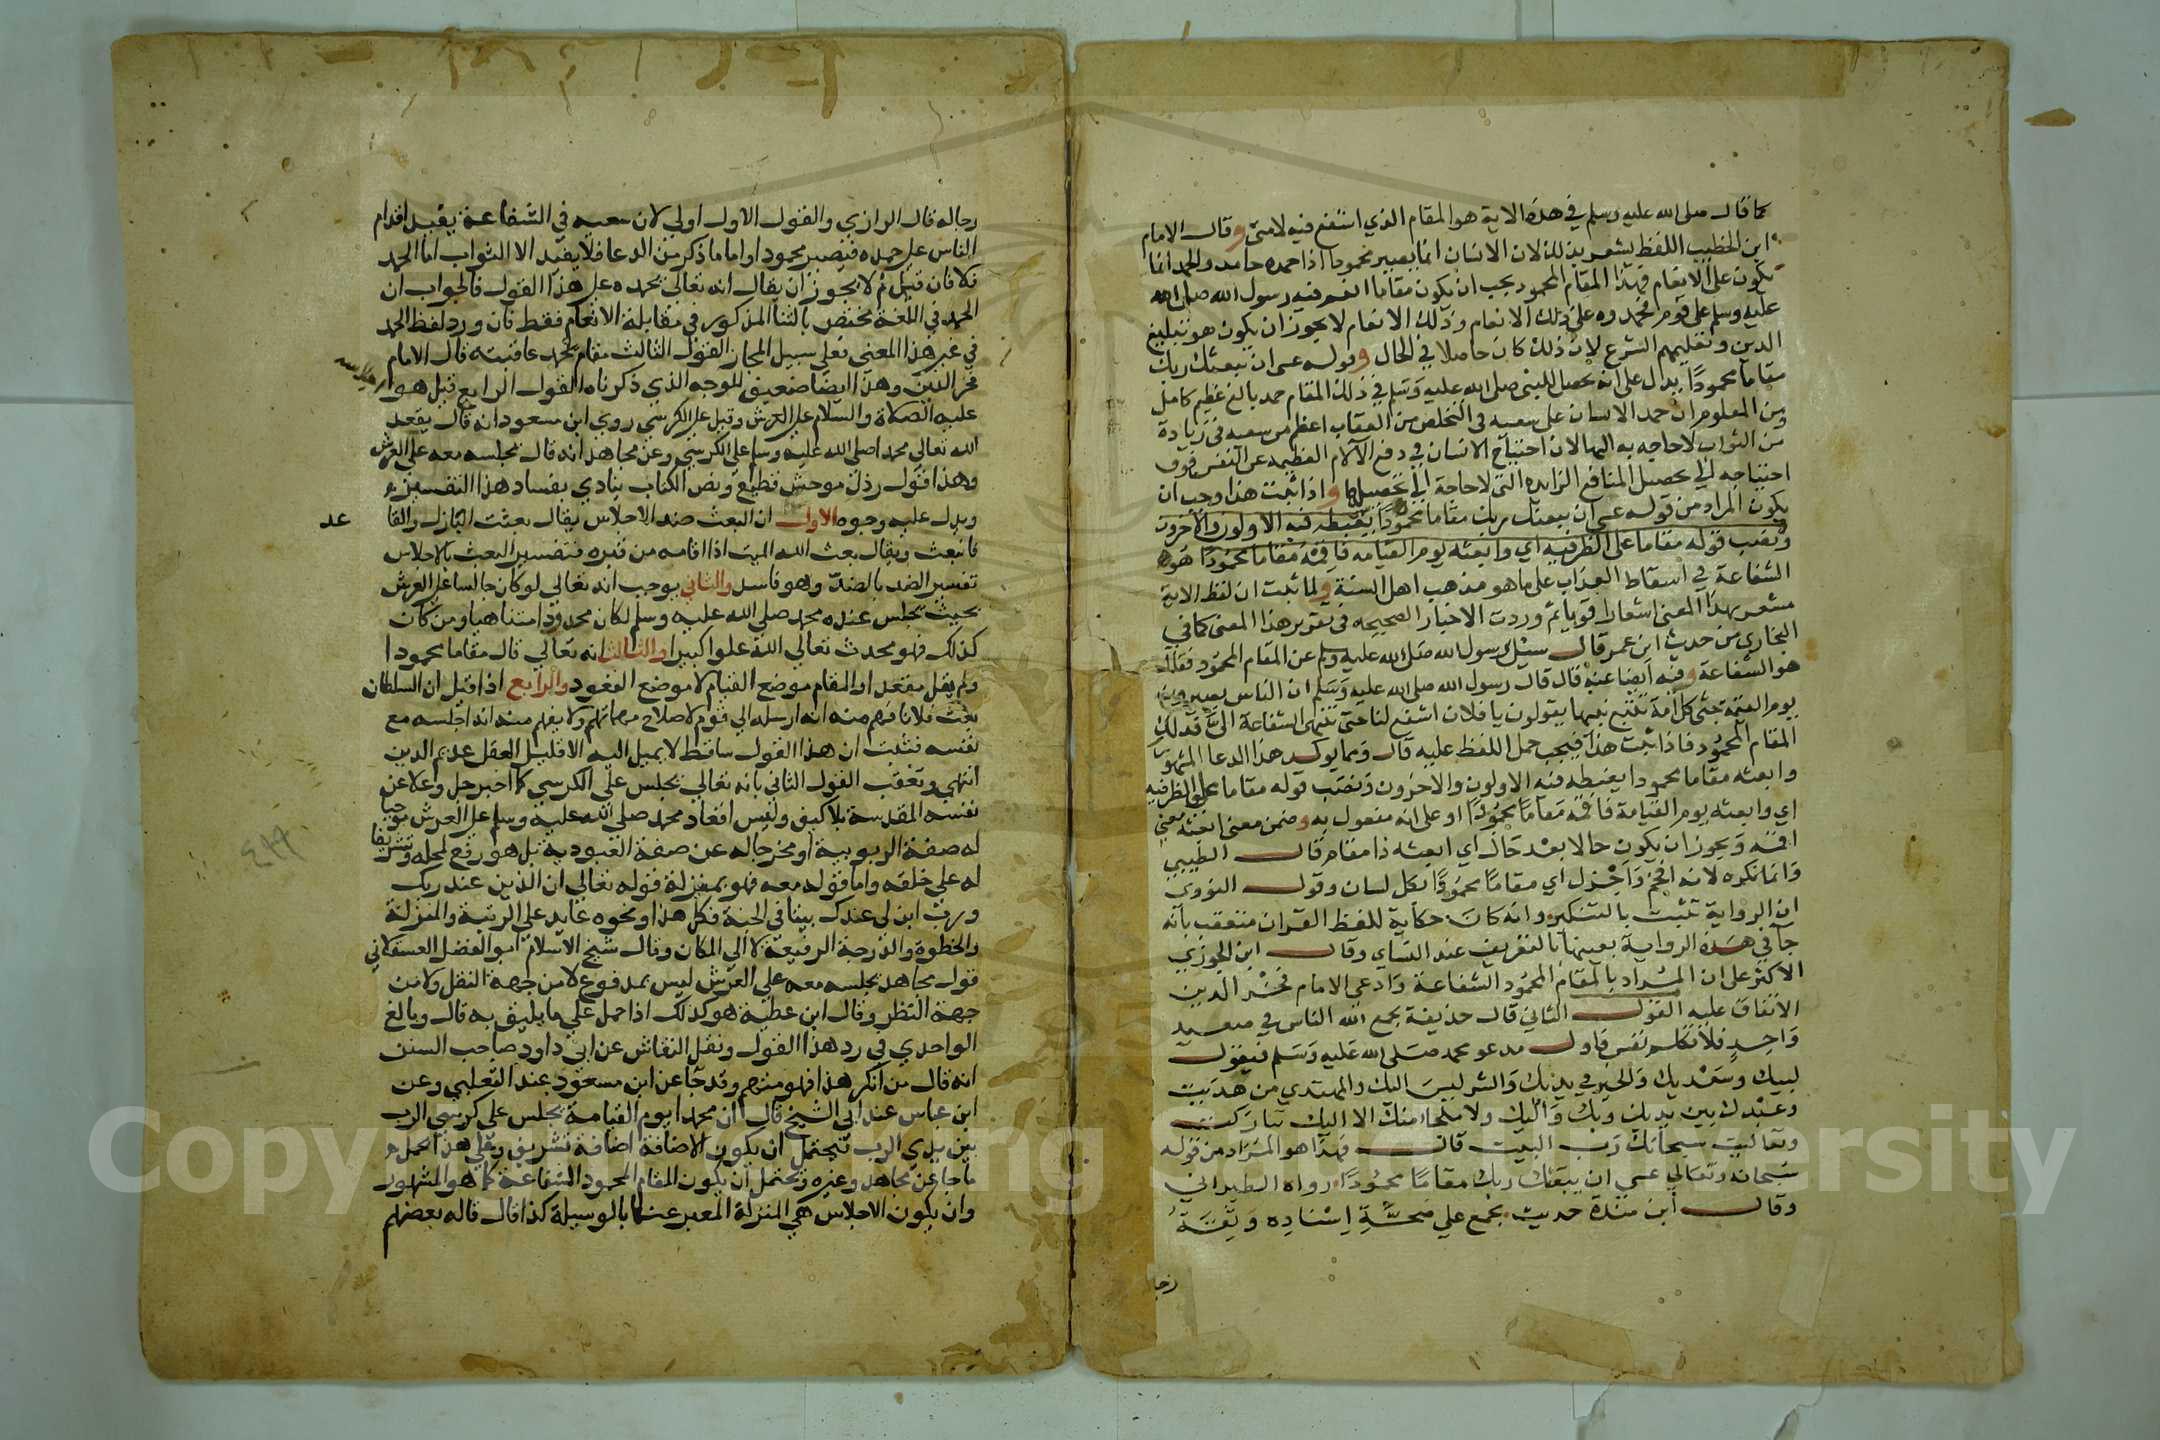 كما قال صلى الله عليه وسلم في هذه الاية هو المقام الذي اشفع فيه لامتي وقال الامام
ابن الخطيب اللفظ يشعر بذلك لان الانسان انما يصير محمودا اذا حمده حامد والحمد انما
يكون على الانعام فهذا المقام المحمود يجب ان يكون مقاما انعم فيه رسول الله صلى الله
عليه وسلم على قوم فحمدوه على ذلك الانعام وذلك الانعام لا يجوز ان يكون هو تبليغ
الدين وتعليمهم الشرع لان ذلك كان حاصلا في الحال وقوله عسى ان يبعثك ربك
مقاما محمودا يدل على انه يحصل للنبي صلى الله عليه وسلم في ذلك المقام حمد بالغ عظيم كامل
ومن المعلوم ان حمد الانسان على سعيه في التخلص من العقاب اعظم من سعيه في زيادة
من الثواب لا حاجه به اليها لان احتياج الانسان في دفع الآلام العظيمه عن النفس فوق
احتياجه الى تحصيل المنافع الزايده التي لا حاجة الى تحصيلها واذا ثبت هذا وجب ان
يكون المراد من قوله عسى ان يبعثك ربك مقاما محمودا يغبطه فيه الاولون والآخرون
ونصب قوله مقاما على الظرفيه اي وابعثه يوم القيامه فاقمه مقاما محمودا هو
الشفاعة في اسقاط العذاب على ما هو مذهب اهل السنة ولما ثبت ان لفظ الاية
مشعر بهذا المعنى اشعارا قويا ثم وردت الاخبار الصحيحه في تقرير هذا المعنى كما في
البخاري من حديث ابن عمر قال سئل رسول الله صلى الله عليه وسلم عن المقام المحمود فقال
هو الشفاعة وفيه ايضا عنه قال قال رسول الله صلى الله عليه وسلم ان الناس يصيرون
يوم القيمة جثى كل امة تتبع نبيها يقولون يا فلان اشفع لنا حتى تنتهى الشفاعة الىّ فذلك
المقام المحمود فاذا ثبت هذا فيجب حمل اللفظ عليه قال ومما يوكد هذا الدعا المشهور
وابعثه مقاما محمودا يغبطه فيه الاولون والاخرون ونصب قوله مقاما على الظرفيه
اي وابعثه يوم القيامة فاقمه مقاما محمودا او على انه مفعول به وضمن معنى ابعثه معنى
اقمه ويجوز ان يكون حالا بعد حال اي ابعثه ذا مقام قال الطيبي
وانما نكره لانه افخم واجزل اي مقاما محمودا بكل لسان وقول النووي
ان الرواية ثبتت بالتنكير وانه كان حكاية للفظ القرآن متعقب بانه
جا في هذه الرواية بعينها بالتعريف عند النساي وقال ابن الجوزي
الاكثر على ان المراد بالمقام المحمود الشفاعة وادعى الامام فخر الدين
الاتفاق عليه القول الثاني قال حذيفة يجمع الله الناس في صعيد
واحد فلا تكلم نفس فاول مدعو محمد صلى الله عليه وسلم فيقول
لبيك وسعديك والخير في يديك والشر ليس اليك والمهتدي من هديت
وعبدك بين يديك وبك واليك ولا ملجاء منك الا اليك تباركت
وتعاليت سبحانك رب البيت قال فهذا هو المراد من قوله
سبحانه وتعالى عسى ان يبعثك ربك مقاما محمودا رواه الطبراني
وقال ابن مندة حديث مجمع على صحة اسناده وثقة
رجا
رجاله قال الرازي والقول الاول اولى لان سعيه في الشفاعة يفيد اقدام
الناس على حمده فيصير محمودا واما ما ذكر من الدعا فلا يفيد الا الثواب اما الحمد
فلا فان قيل لم لا يجوز ان يقال انه تعالى يحمده على هذا القول فالجواب ان
الحمد في اللغة مختص بالثنا المذكور في مقابلة الانعام فقط فان ورد لفظ الحمد
في غير هذا المعنى فعلى سبيل المجاز القول الثالث مقام تحمد عاقبته قال الامام
فخر الدين وهذا ايضا ضعيف للوجه الذي ذكرناه القول الرابع قيل هو
عليه الصلاة والسلام على العرش وقيل على الكرسي روي ابن مسعود انه قال يقعد
الله تعالى محمدا صلى الله عليه وسلم على الكرسي وعن مجاهد انه قال يجلسه معه على العرش
وهذا قول رذل موحش فظيع ونص الكتاب ينادي بفساد هذا التفسير
ويدل عليه وجوه الاول ان البعث ضد الاجلاس يقال بعثت البازل والقا
عد
فانبعث ويقال بعث الله الميت اذا اقامه من قبره فتفسير البعث بالاجلاس
تفسير الضد بالضد وهو فاسد والثاني يوجب انه تعالى لو كان جالسا على العرش
بحيث يجلس عنده محمد صلى الله عليه وسلم لكان محدودا متناهيا ومن كان
كذلك فهو محدث تعالى الله علوا كبيرا والثالث انه تعالى قال مقاما محمودا
ولم يقل مقعدا والمقام موضع القيام لا موضع القعود والرابع اذا قيل ان السلطان
بعث فلانا فهم منه انه ارسله الى قوم لاصلاح مهماتهم ولا يفهم منه انه اجلسه مع
نفسه فثبت ان هذا القول ساقط لا يميل اليه الا قليل العقل عديم الدين
انتهى وتعقب القول الثاني بانه تعالى يجلس على الكرسي كما اخبر جل وعلا عن
نفسه المقدسة بلا كيف وليس اقعاد محمد صلى الله عليه وسلم على العرش موجبا
له صفة الربوبية او مخرجا له عن صفة العبودية بل هو رفع لمحله وتشريفا
له على خلقه واما قوله معه فهو بمنزلة قوله تعالى ان الذين عند ربك
ورب ابن لى عندك بيتا في الجنة فكل هذا ونحوه عايد على الرتبة والمنزلة
والحظوة والدرجة الرفيعة لا الى المكان وقال شيخ الاسلام ابو الفضل العسقلاني
قول مجاهد يجلسه معه على العرش ليس بمدفوع لا من جهة النقل ولا من
جهة النظر وقال ابن عطية هو كذلك اذا حمل على ما يليق به قال وبالغ
الواحدي في رد هذا القول ونقل النقاش عن ابي داود صاحب السنن
انه قال من انكر هذا فهو متهم وقد جا عن ابن مسعود عند الثعلبي وعن
ابن عباس عند ابي الشيخ قال ان محمدا يوم القيامة يجلس على كرسي الرب
بين يدي الرب فيحتمل ان يكون الاضافة اضافة تشريف وعلى هذا يحمل
ما جا عن مجاهد وغيره ويحتمل ان يكون المقام المحمود الشفاعة كما هو المشهور
وان يكون الاجلاس هي المنزلة المعبر عنها بالوسيلة كذا قال قاله بعضهم